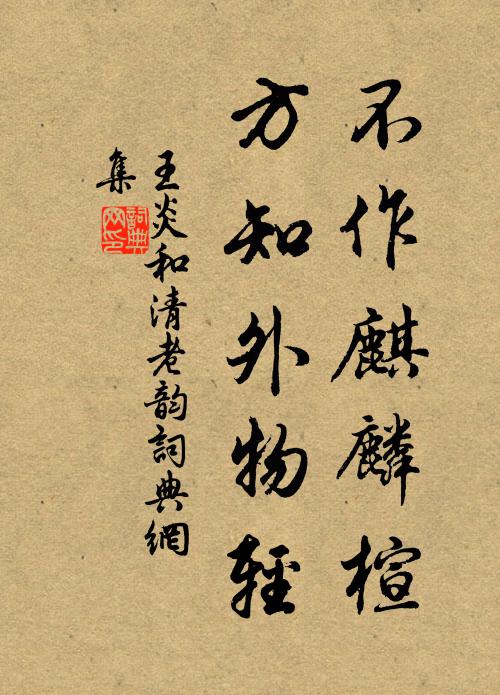 不作麒麟楦
方知外物輕
王炎和清老韵詞典網
集
詞典網印